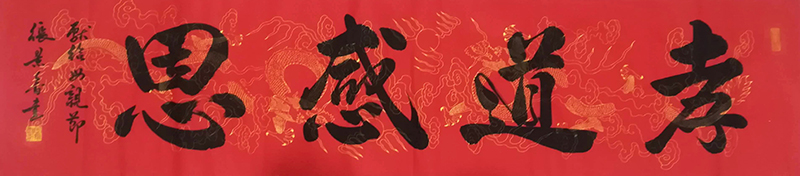 孝道感恩
獻給母親節
張景書